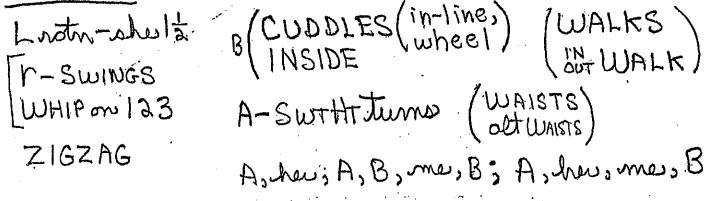 L rotn-shul ½
[r-SWINGS
[WHIP on 123
ZIGZAG
B(CUDDLES (in-line, wheel)
INSIDE
(WALKS
IN OUT WALK)
A-SWTHT turns (WAISTS
alt WAISTS)
A, her; A, B, me, B; A, her, me, B